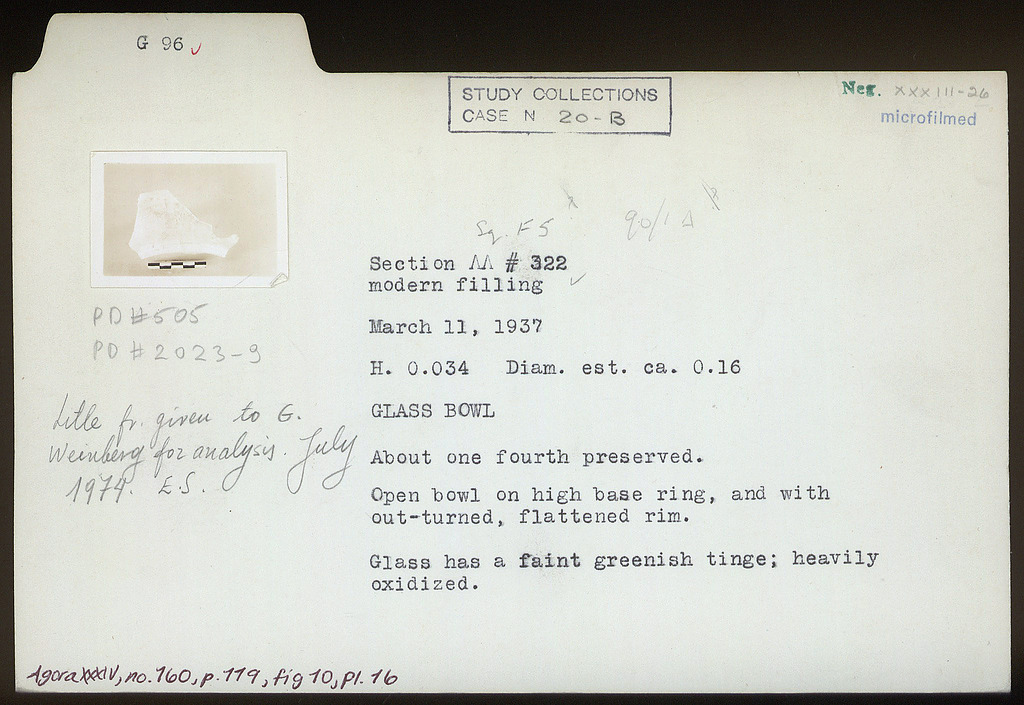 G 96 ✓
STUDY COLLECTIONS
CASE N 20-B
Neg. XXXIII-26
microfilmed
Sq. F5
90/1Δ
Section ΛΛ # 322
modern filling ✓
March 11, 1937
H. 0.034 Diam. est. ca. 0.16
GLASS BOWL
About one fourth preserved.
Open bowl on high base ring, and with
out-turned, flattened rim.
Glass has a faint greenish tinge; heavily
oxidized.
PD#505
PD#2023-9
Little fr. given to G.
Weinberg for analysis. July
1974. E.S.
Agora XXXIV, no. 160, p. 119, fig 10, pl. 16